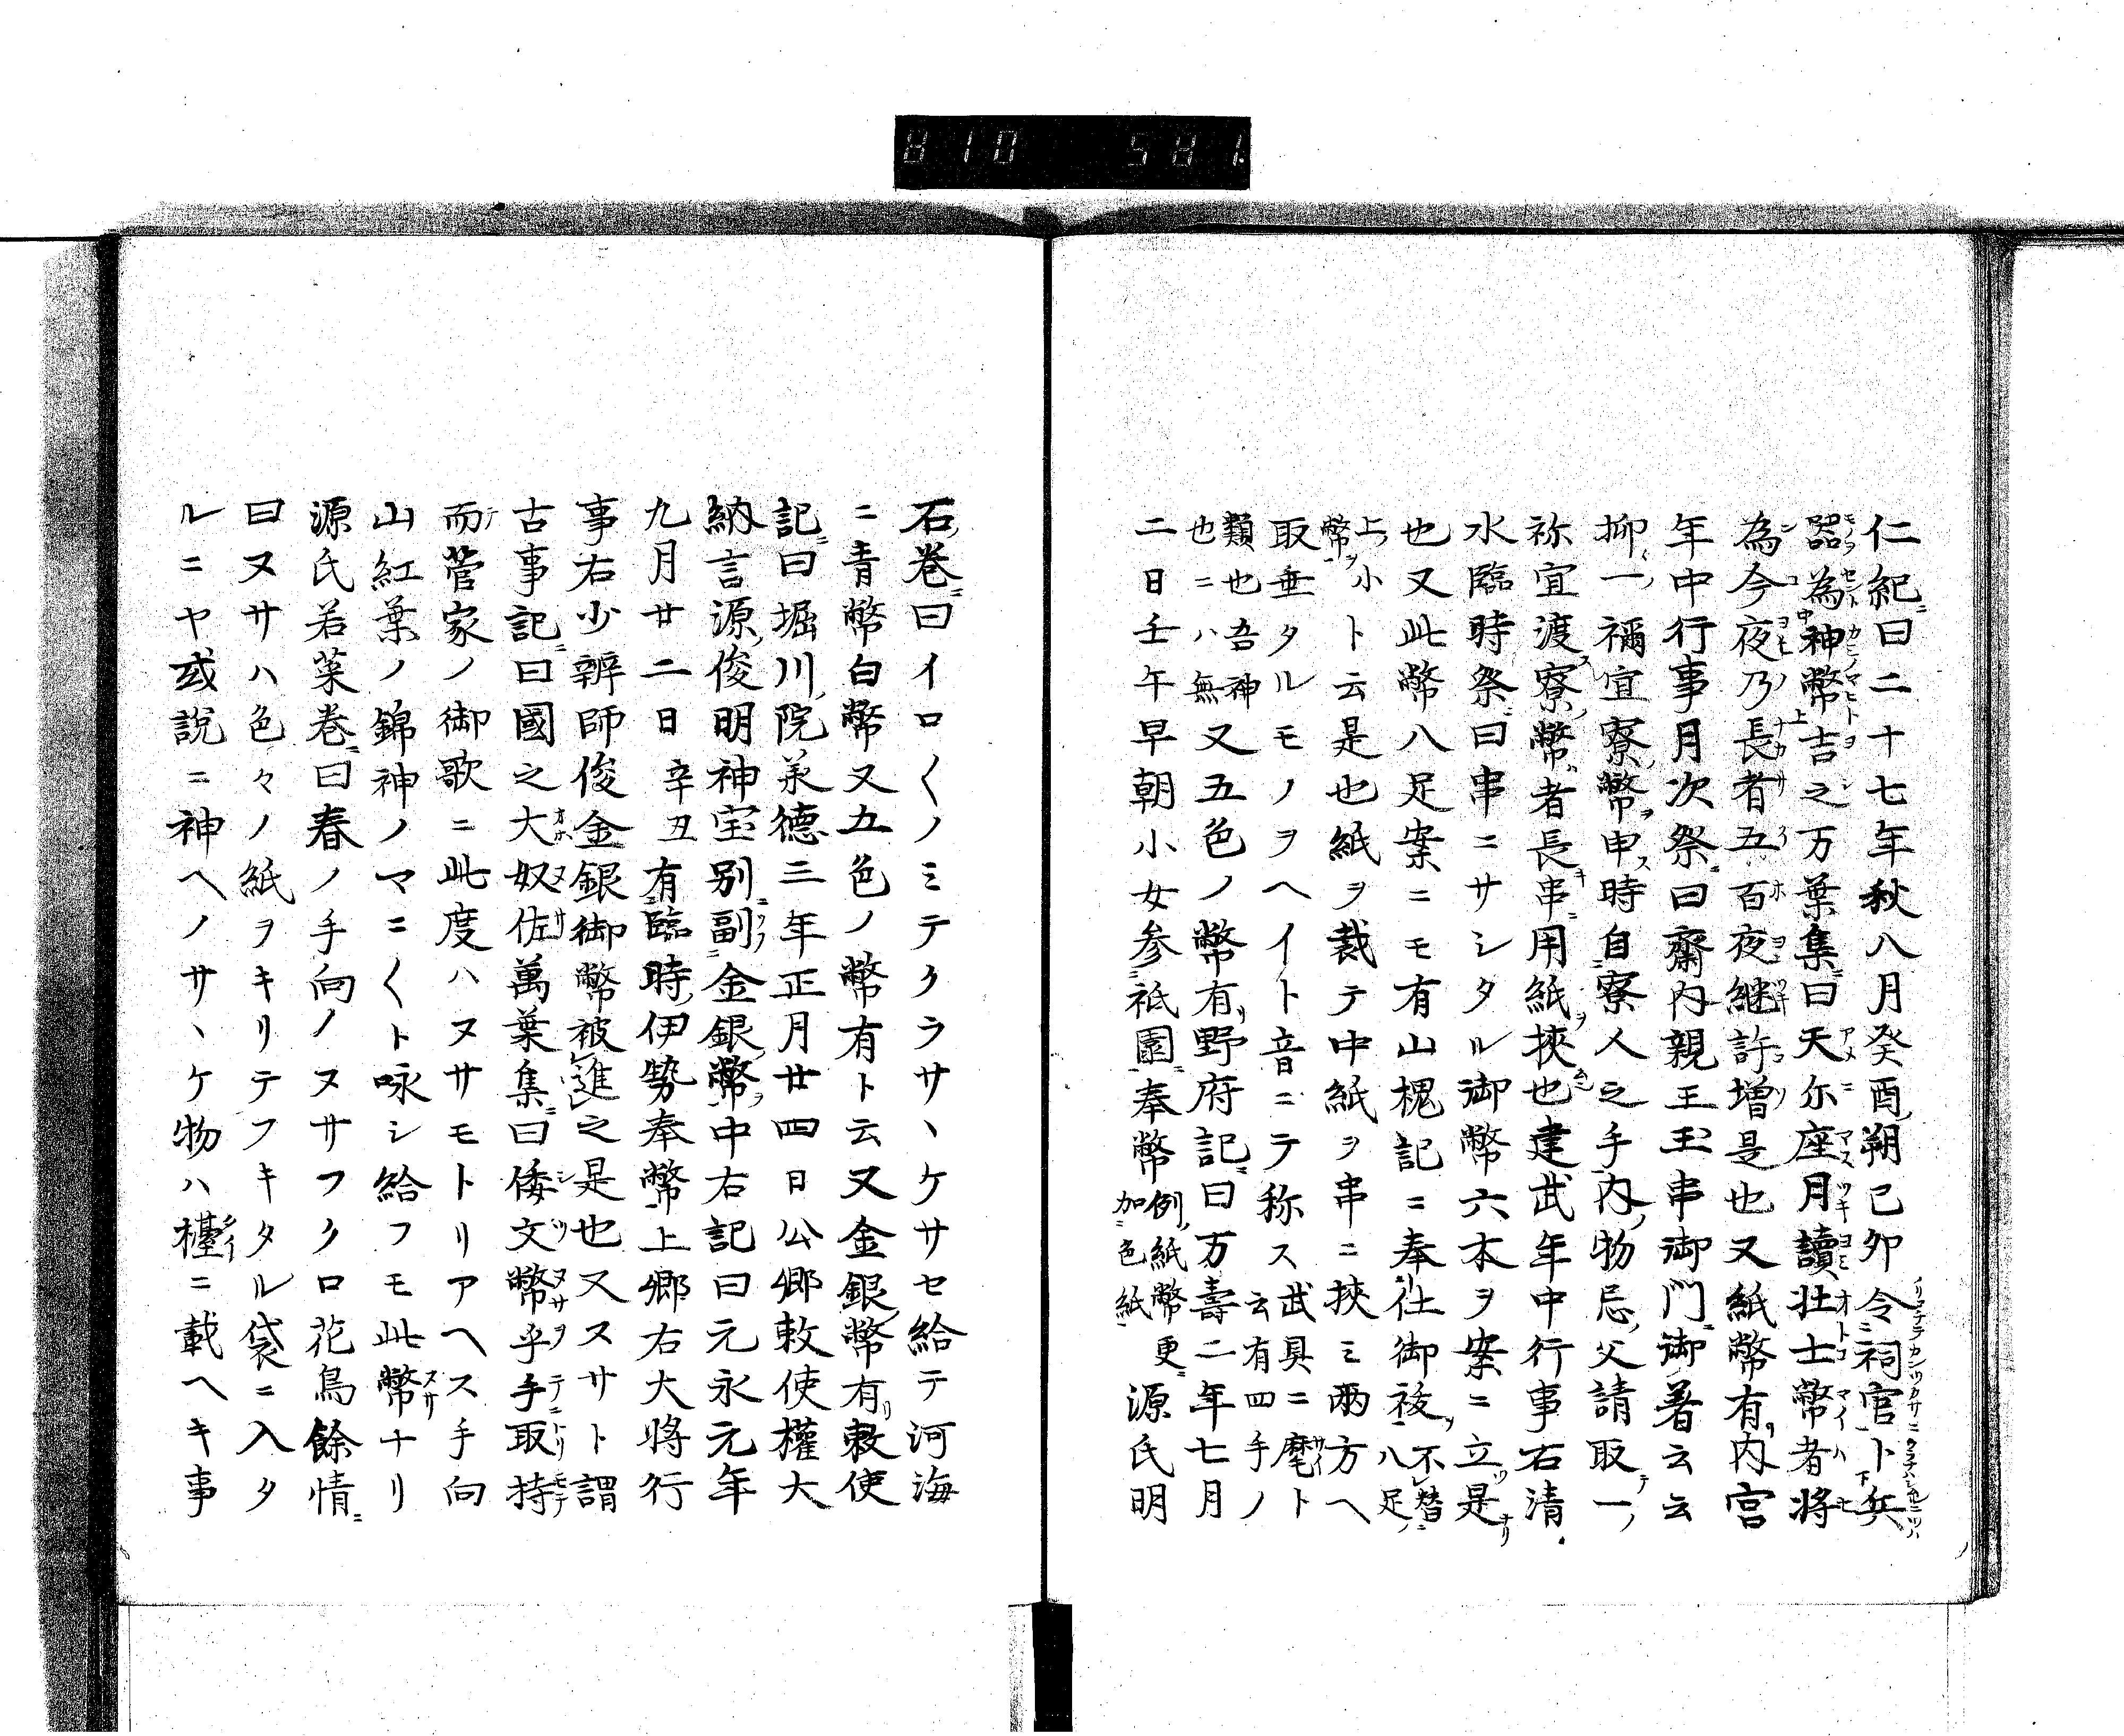 仁紀ニ曰二十七年秋八月癸酉朔己卯令祠官卜兵
器為神幣吉之万葉集ニ曰天尓座月讀壮士幣者将
為今夜乃長者五百夜継許増是也又紙幣有内宮
年中行事月次祭ニ曰齋内親王玉串御門ニ御著云云
抑一禰宜寮幣申時自寮人之手内物忌父請取一
祢宜渡寮幣者長串ニ用紙挾也建武年中行事右清
水臨時祭ニ曰串ニサシタル御幣六本ヲ案ニ立是
也又此幣八足案ニモ有山槐記ニ奉仕御祓不替八足
上小幣ト云是也紙ヲ裁テ中紙ヲ串ニ挾ミ両方ヘ
取垂タルモノヲヘイト音ニテ称ス武具ニ麾ト云有四手ノ
類也吾神也ニハ無又五色ノ幣有野府記ニ曰万壽二年七月
二日壬午早朝小女参祇園奉幣例紙幣更加色紙源氏明
石巻ニ曰イロ〱ノミテクラサヽケサセ給テ河海
ニ青幣白幣又五色ノ幣有ト云又金銀幣有敕使
記ニ曰堀川院承德三年正月廿四日公卿敕使權大
納言源俊明神宝別副金銀幣中右記曰元永元年
九月廿二日辛丑有臨時伊勢奉幣上卿右大将行
事右少辨師俊金銀御幣被進之是也又スサト謂
古事記ニ曰國之大奴佐萬葉集ニ曰倭文幣乎手取持
而菅家ノ御歌ニ此度ハヌサモトリアヘス手向
山紅葉ノ錦神ノマニ〱ト咏シ給フモ此幣ナリ
源氏若菜巻ニ曰春ノ手向ノヌサフクロ花鳥餘情ニ
曰ヌサハ色々ノ紙ヲキリテフキタル袋ニ入タ
ルニヤ或説ニ神ヘノサヽケ物ハ㯂ニ載ヘキ事